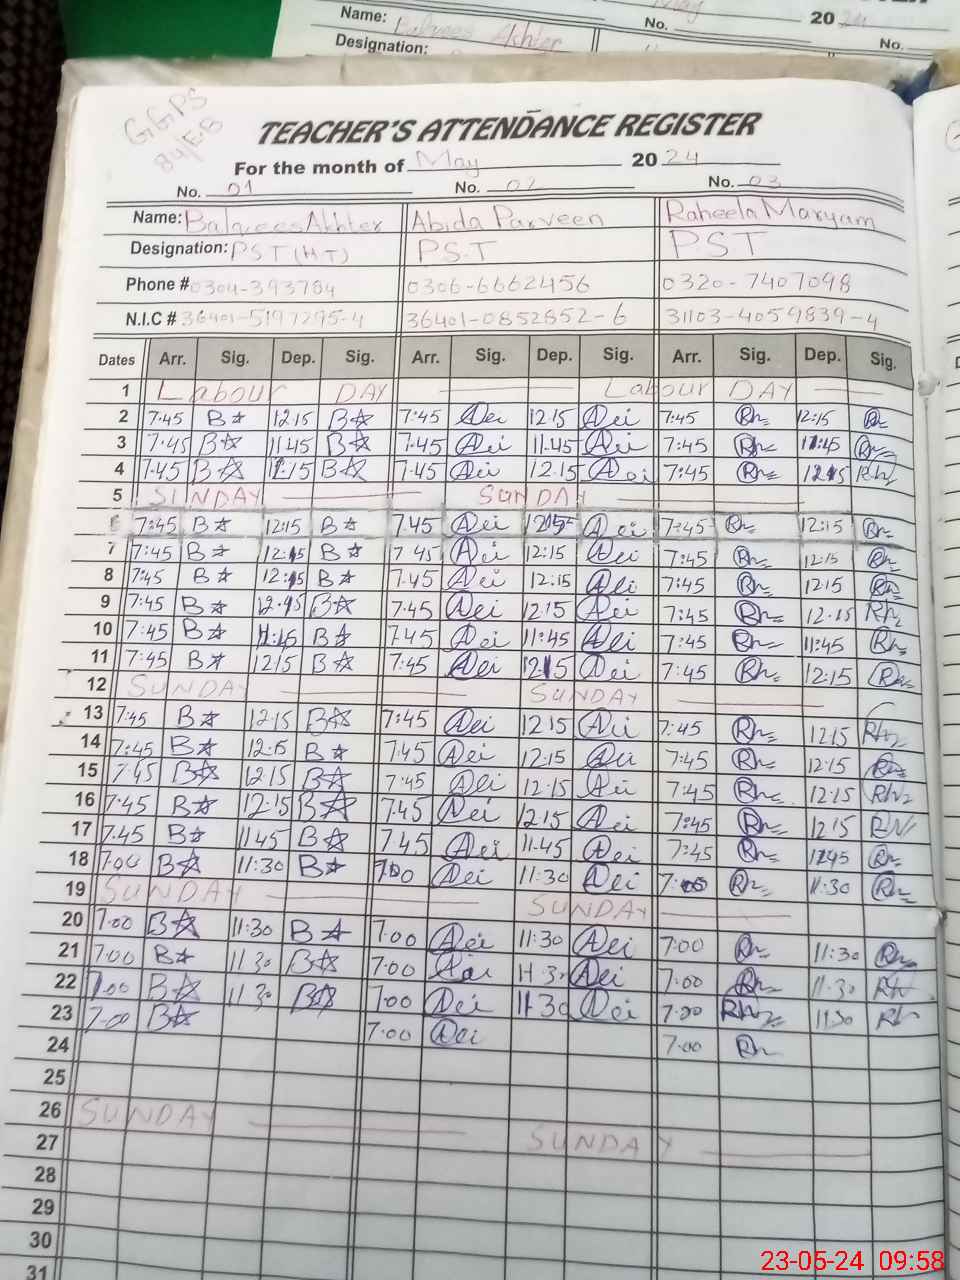 Name: Balqees Akhter
May
20 24
No.
Designation:
No.
GGPS
84/EB
TEACHER'S ATTENDANCE REGISTER
For the month of May 20 24
No. 01 No. 02 No. 03
Name: Balqees Akhter Abida Parveen Raheela Maryam
Designation: PST (H.T) PS.T PST
Phone # 0304-393784 0306-6662456 0320-7407098
N.I.C # 36401-5197295-4 36401-0852852-6 31103-4059839-4
Dates Arr. Sig. Dep. Sig. Arr. Sig. Dep. Sig. Arr. Sig. Dep. Sig.
1 Labour DAY Labour DAY
2 7:45 B 12:15 B 7:45 Aei 12:15 Aei 7:45 Rh 12:15 Rh
3 7:45 B 11:45 B 7:45 Aei 11:45 Aei 7:45 Rh 11:45 Rh
4 7:45 B 12:15 B 7:45 Aei 12:15 Aei 7:45 Rh 12:15 Rh
5 SUNDAY SUNDAY
6 7:45 B 12:15 B 7:45 Aei 12:15 Aei 7:45 Rh 12:15 Rh
7 7:45 B 12:15 B 7:45 Aei 12:15 Aei 7:45 Rh 12:15 Rh
8 7:45 B 12:15 B 7:45 Aei 12:15 Aei 7:45 Rh 12:15 Rh
9 7:45 B 12:15 B 7:45 Aei 12:15 Aei 7:45 Rh 12:15 Rh
10 7:45 B 11:45 B 7:45 Aei 11:45 Aei 7:45 Rh 11:45 Rh
11 7:45 B 12:15 B 7:45 Aei 12:15 Aei 7:45 Rh 12:15 Rh
12 SUNDAY SUNDAY
13 7:45 B 12:15 B 7:45 Aei 12:15 Aei 7:45 Rh 12:15 Rh
14 7:45 B 12:15 B 7:45 Aei 12:15 Aei 7:45 Rh 12:15 Rh
15 7:45 B 12:15 B 7:45 Aei 12:15 Aei 7:45 Rh 12:15 Rh
16 7:45 B 12:15 B 7:45 Aei 12:15 Aei 7:45 Rh 12:15 Rh
17 7:45 B 11:45 B 7:45 Aei 11:45 Aei 7:45 Rh 11:45 Rh
18 7:00 B 11:30 B 7:00 Aei 11:30 Aei 7:00 Rh 11:30 Rh
19 SUNDAY SUNDAY
20 7:00 B 11:30 B 7:00 Aei 11:30 Aei 7:00 Rh 11:30 Rh
21 7:00 B 11:30 B 7:00 Aei 11:30 Aei 7:00 Rh 11:30 Rh
22 7:00 B 11:30 B 7:00 Aei 11:30 Aei 7:00 Rh 11:30 Rh
23 7:00 B 7:00 Aei 7:00 Rh
24
25
26 SUNDAY SUNDAY
27
28
29
30
31
23-05-24 09:58